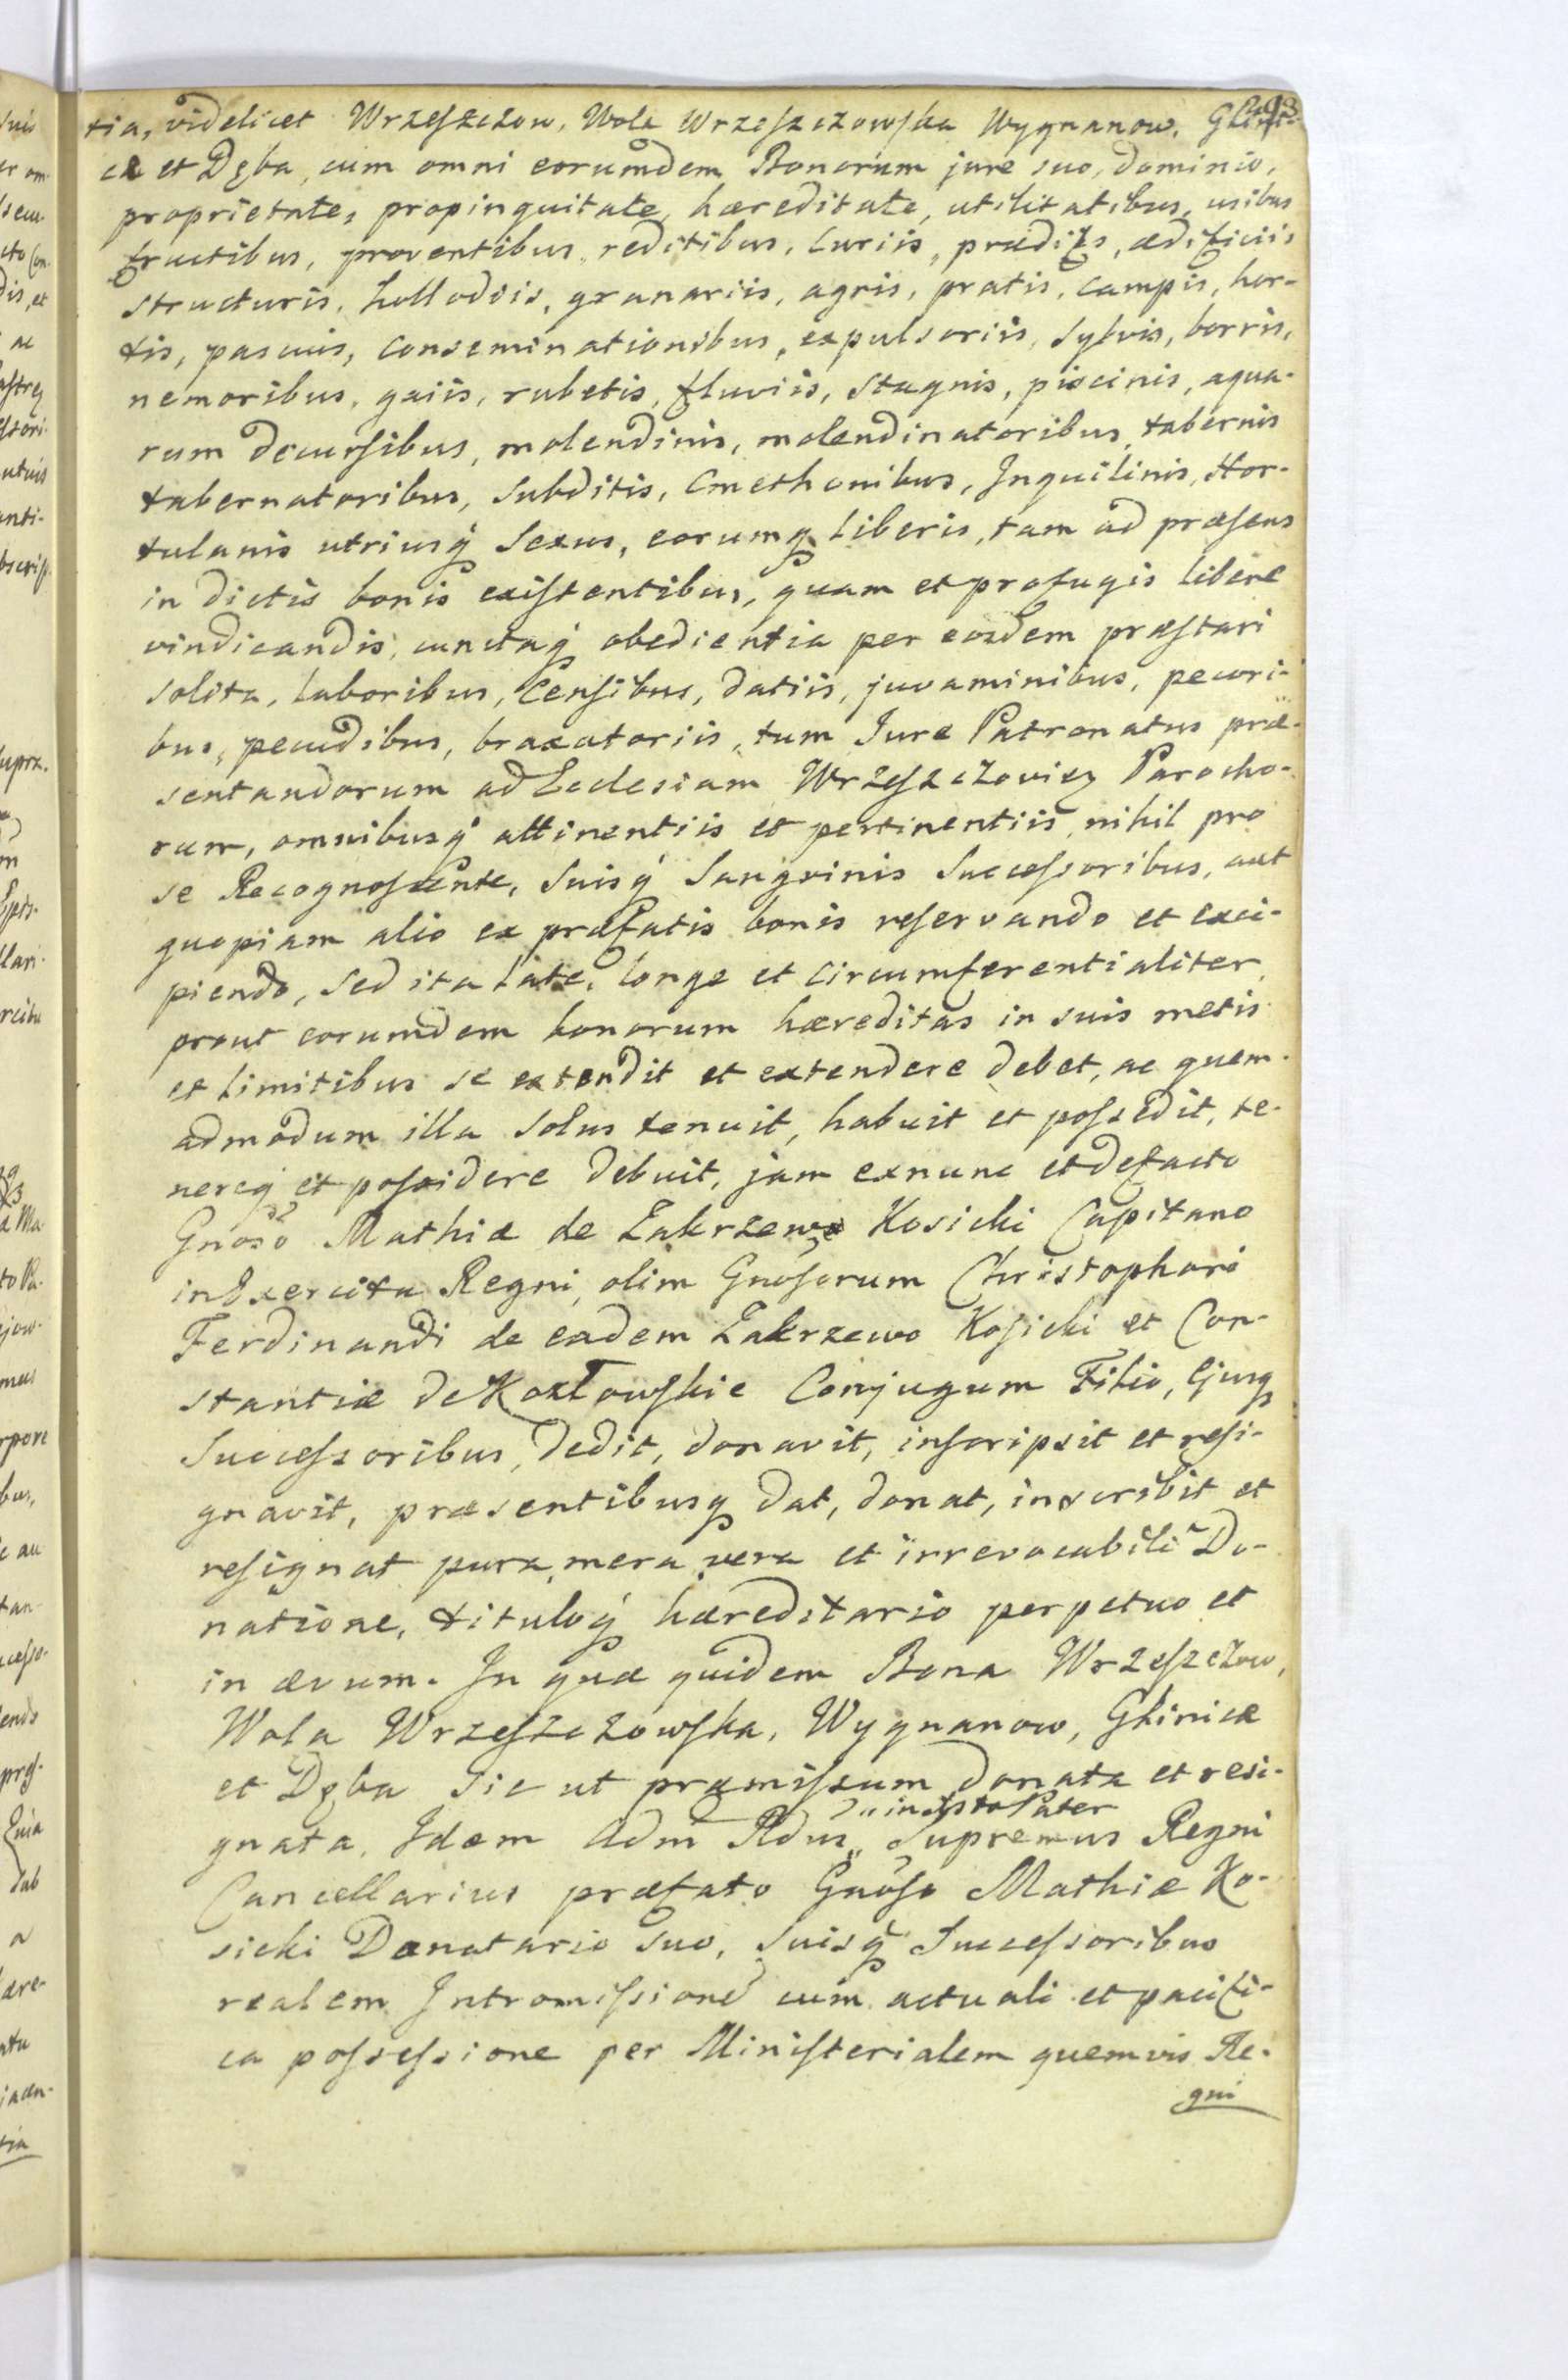 tia, videlicet Wrzeszczow, Wola Wrzeszczowska Wygnanow, Glini-
cæ et Dęba, cum omni eorumdem Bonorum jure suo, dominio,
proprietate, propinquitate, hæreditate, utilitatibus, usibus
fructibus, proventibus, reditibus, curiis, prædiis, ædificiis
structuris, hollodiis, granariis, agris, pratis, campis, hor-
tis, pascuis, conseminationibus, expulsoriis, sylvis, borris,
nemoribus, gaiis, rubetis, fluviis, stagnis, piscinis, aqua-
rum decursibus, molendinis, molendinatoribus, tabernis
tabernatoribus, subditis, Cmethonibus, Inquilinis, Hor-
tulanis utriusq́ sexus, eorumq liberis, tam ad præsens
in dictis bonis existentibus, quam et profugis libere
vindicandis, cunctaq́ obedientia per eosdem præstari
solita, laboribus, censibus, datiis, juvaminibus, pecori-
bus, pecudibus, braxatoriis, tum Jure Patronatus præ-
sentandorum ad Ecclesiam Wrzeszczoviens Parocho-
rum, omnibusq́ attinentiis et pertinentiis, nihil pro
se Recognoscente, suisq́ Sangvinis Successoribus, aut
quopiam alio ex præfatis bonis reservando et exci-
piendo, sed ita late, longe et circumferentialiter,
prout eorumdem bonorum hæreditas in suis metis
et limitibus se extendit et extendere debet, ac quem-
admodum illa solus tenuit, habuit et possedit, te-
nereq et possidere debuit, jam exnunc et defacto
Gnoso Mathiæ de Zakrzewo Kosicki Capitano
in Exercitu Regni, olim Gnosorum Christophori
Ferdinandi de eadem Zakrzewo Kosicki et Con-
stantiæ de Kozłowskie Conjugum Filio, Ejusq
Successoribus, dedit, donavit, inscripsit et resi-
gnavit, præsentibusq dat, donat, inscribit et
resignat pura, mera, vera et irrevocabili Do-
natione, tituloq́ hæreditario perpetuo et
in ævum. In quæ quidem Bona Wrzeszczow,
Wola Wrzeszczowska, Wygnanow, Glinicæ
et Dęba sic ut præmissum donata et resi-
in Xsto Pater
gnata, Idem Adm Rdus Supremus Regni
Cancellarius præfato Gnoso Mathiæ Ko-
sicki Donatario suo, suisq́ Successoribus
realem Intromissione cum actuali et pacifi-
ca possessione per Ministerialem quemvis Re-
gni